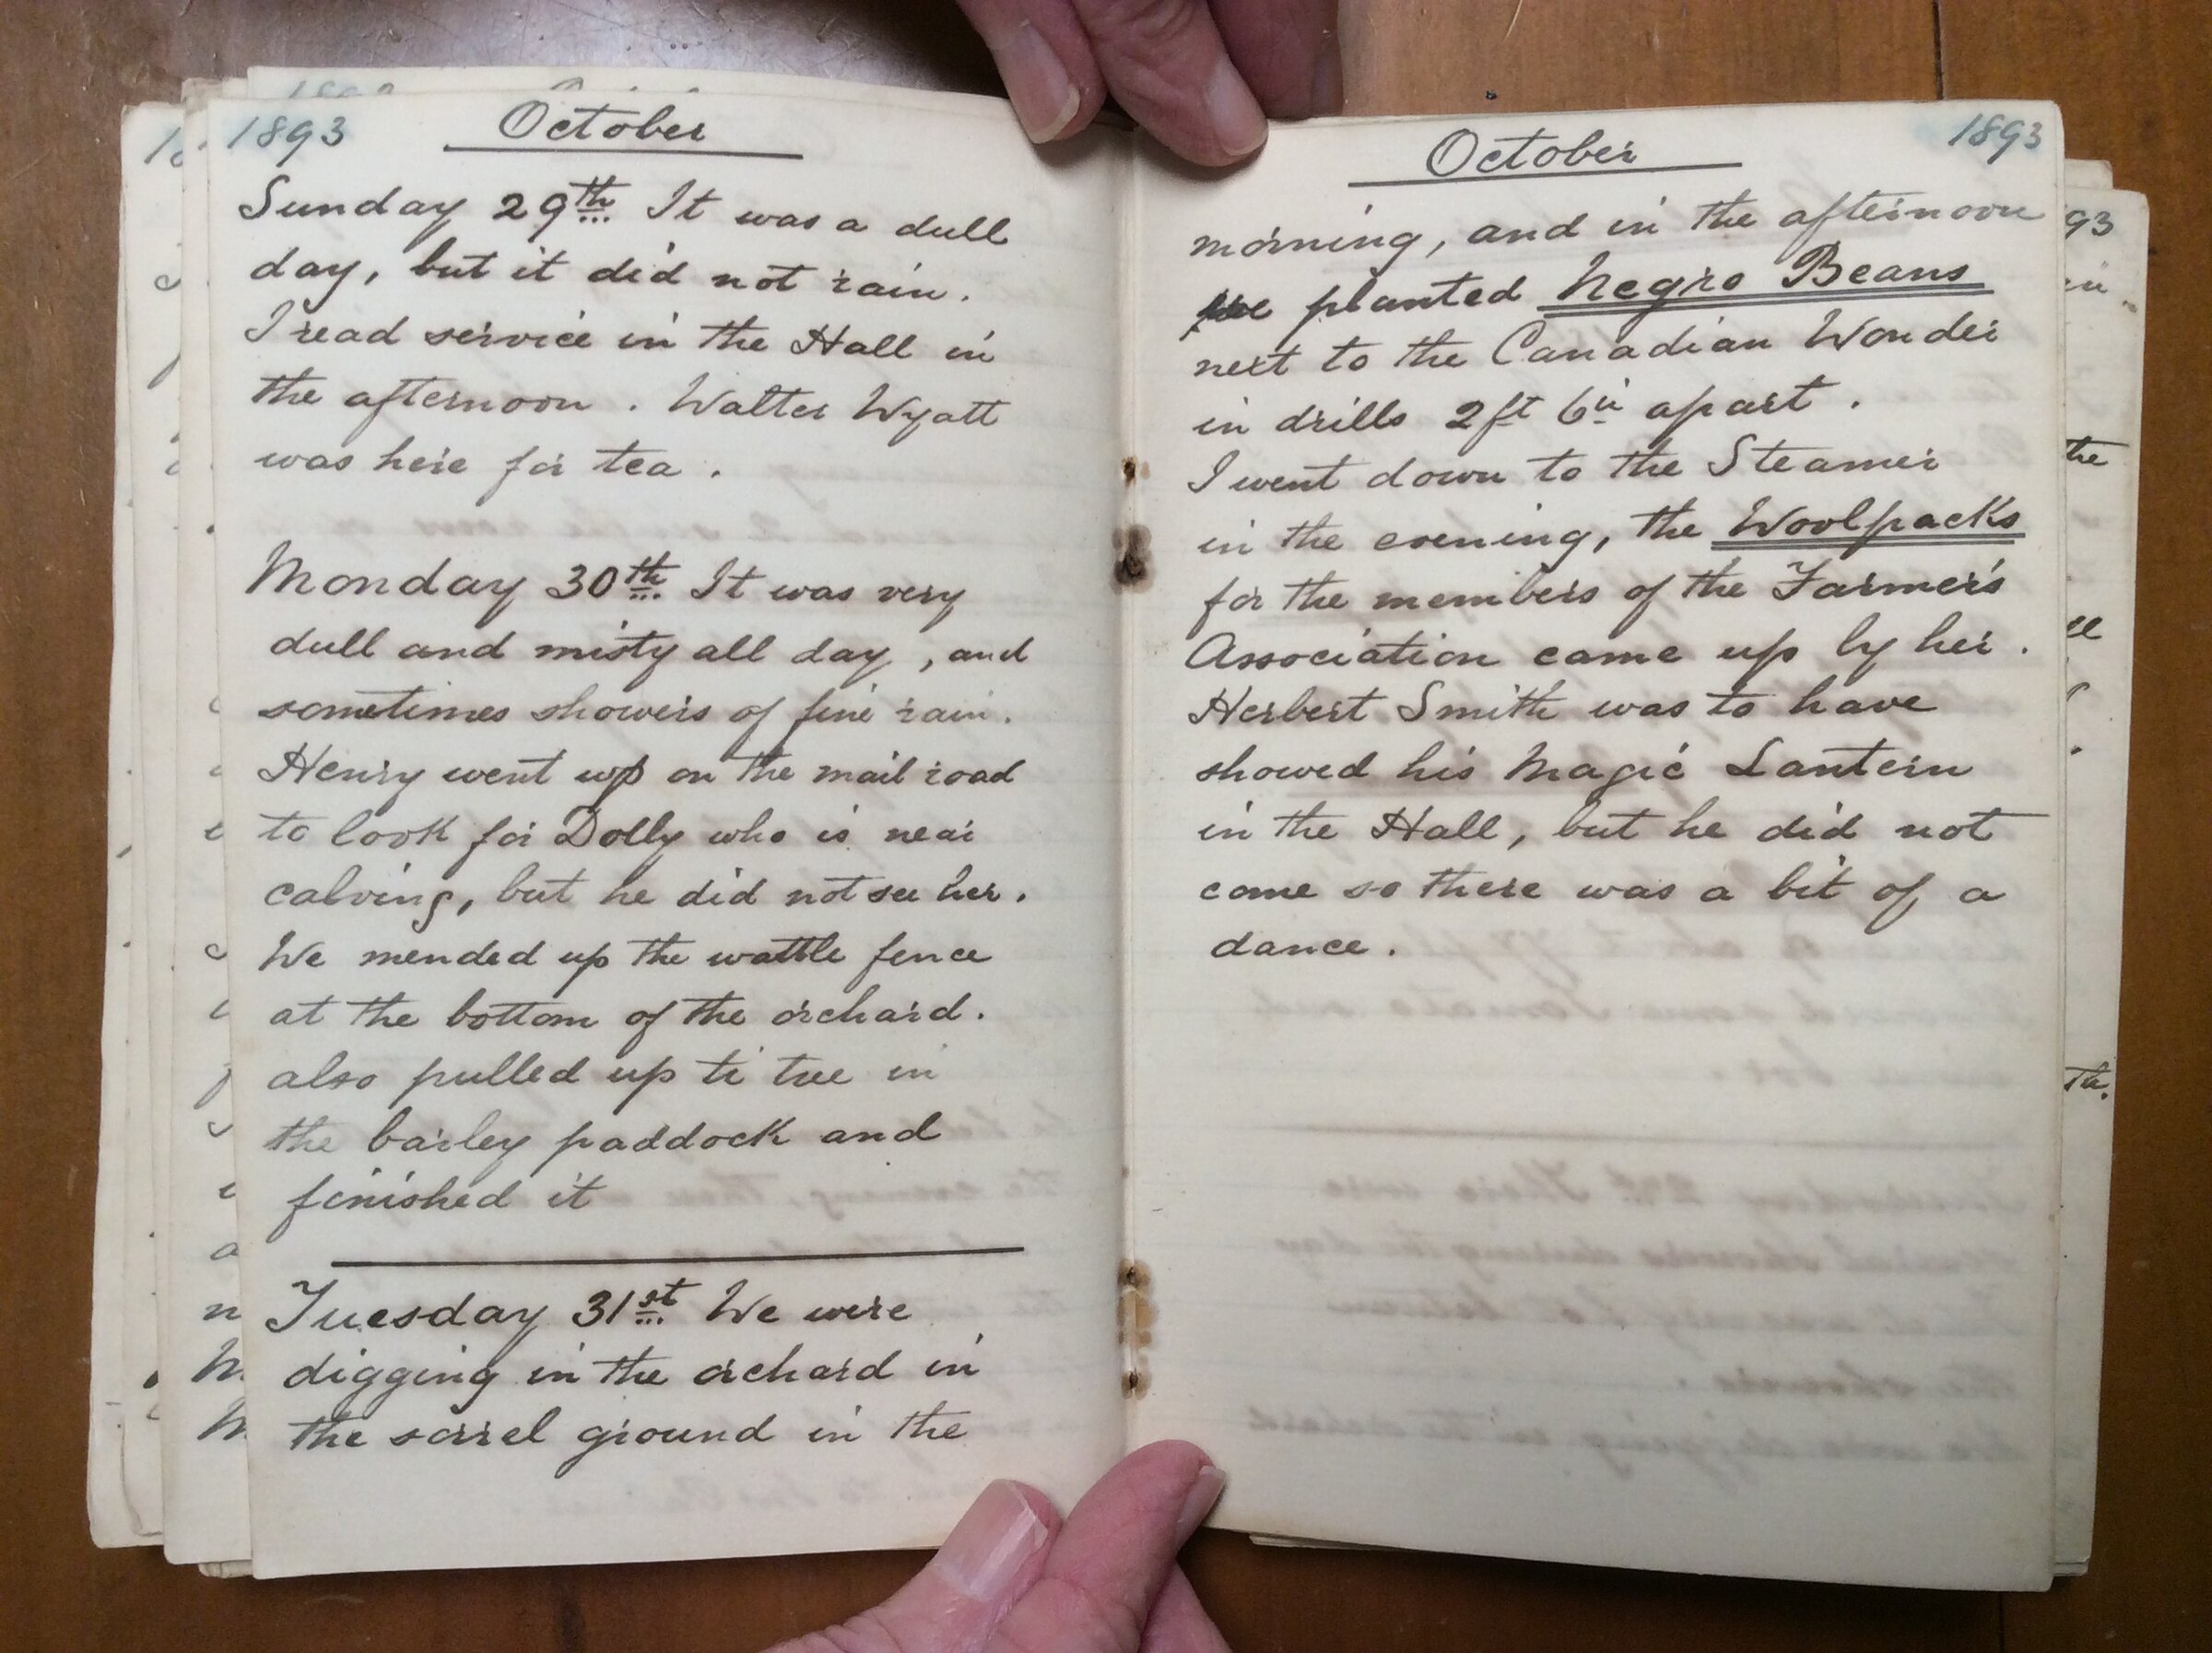 1893 October
Sunday 29th It was a dull
day, but it did not rain.
I read service in the Hall in
the afternoon. Walter Wyatt
was here for tea.
Monday 30th It was very
dull and misty all day, and
sometimes showers of fine rain.
Henry went up on the mail road
to look for Dolly who is near
calving, but he did not see her.
We mended up the wattle fence
at the bottom of the orchard.
also pulled up ti tree in
the barley paddock and
finished it
Tuesday 31st We were
digging in the orchard in
the sorrel ground in the
October 1893
morning, and in the afternoon
we planted Negro Beans
next to the Canadian Wonder
in drills 2ft 6in apart.
I went down to the Steamer
in the evening, the Woolpacks
for the members of the Farmers
Association came up by her.
Herbert Smith was to have
showed his Magic Lantern
in the Hall, but he did not
come so there was a bit of a
dance.